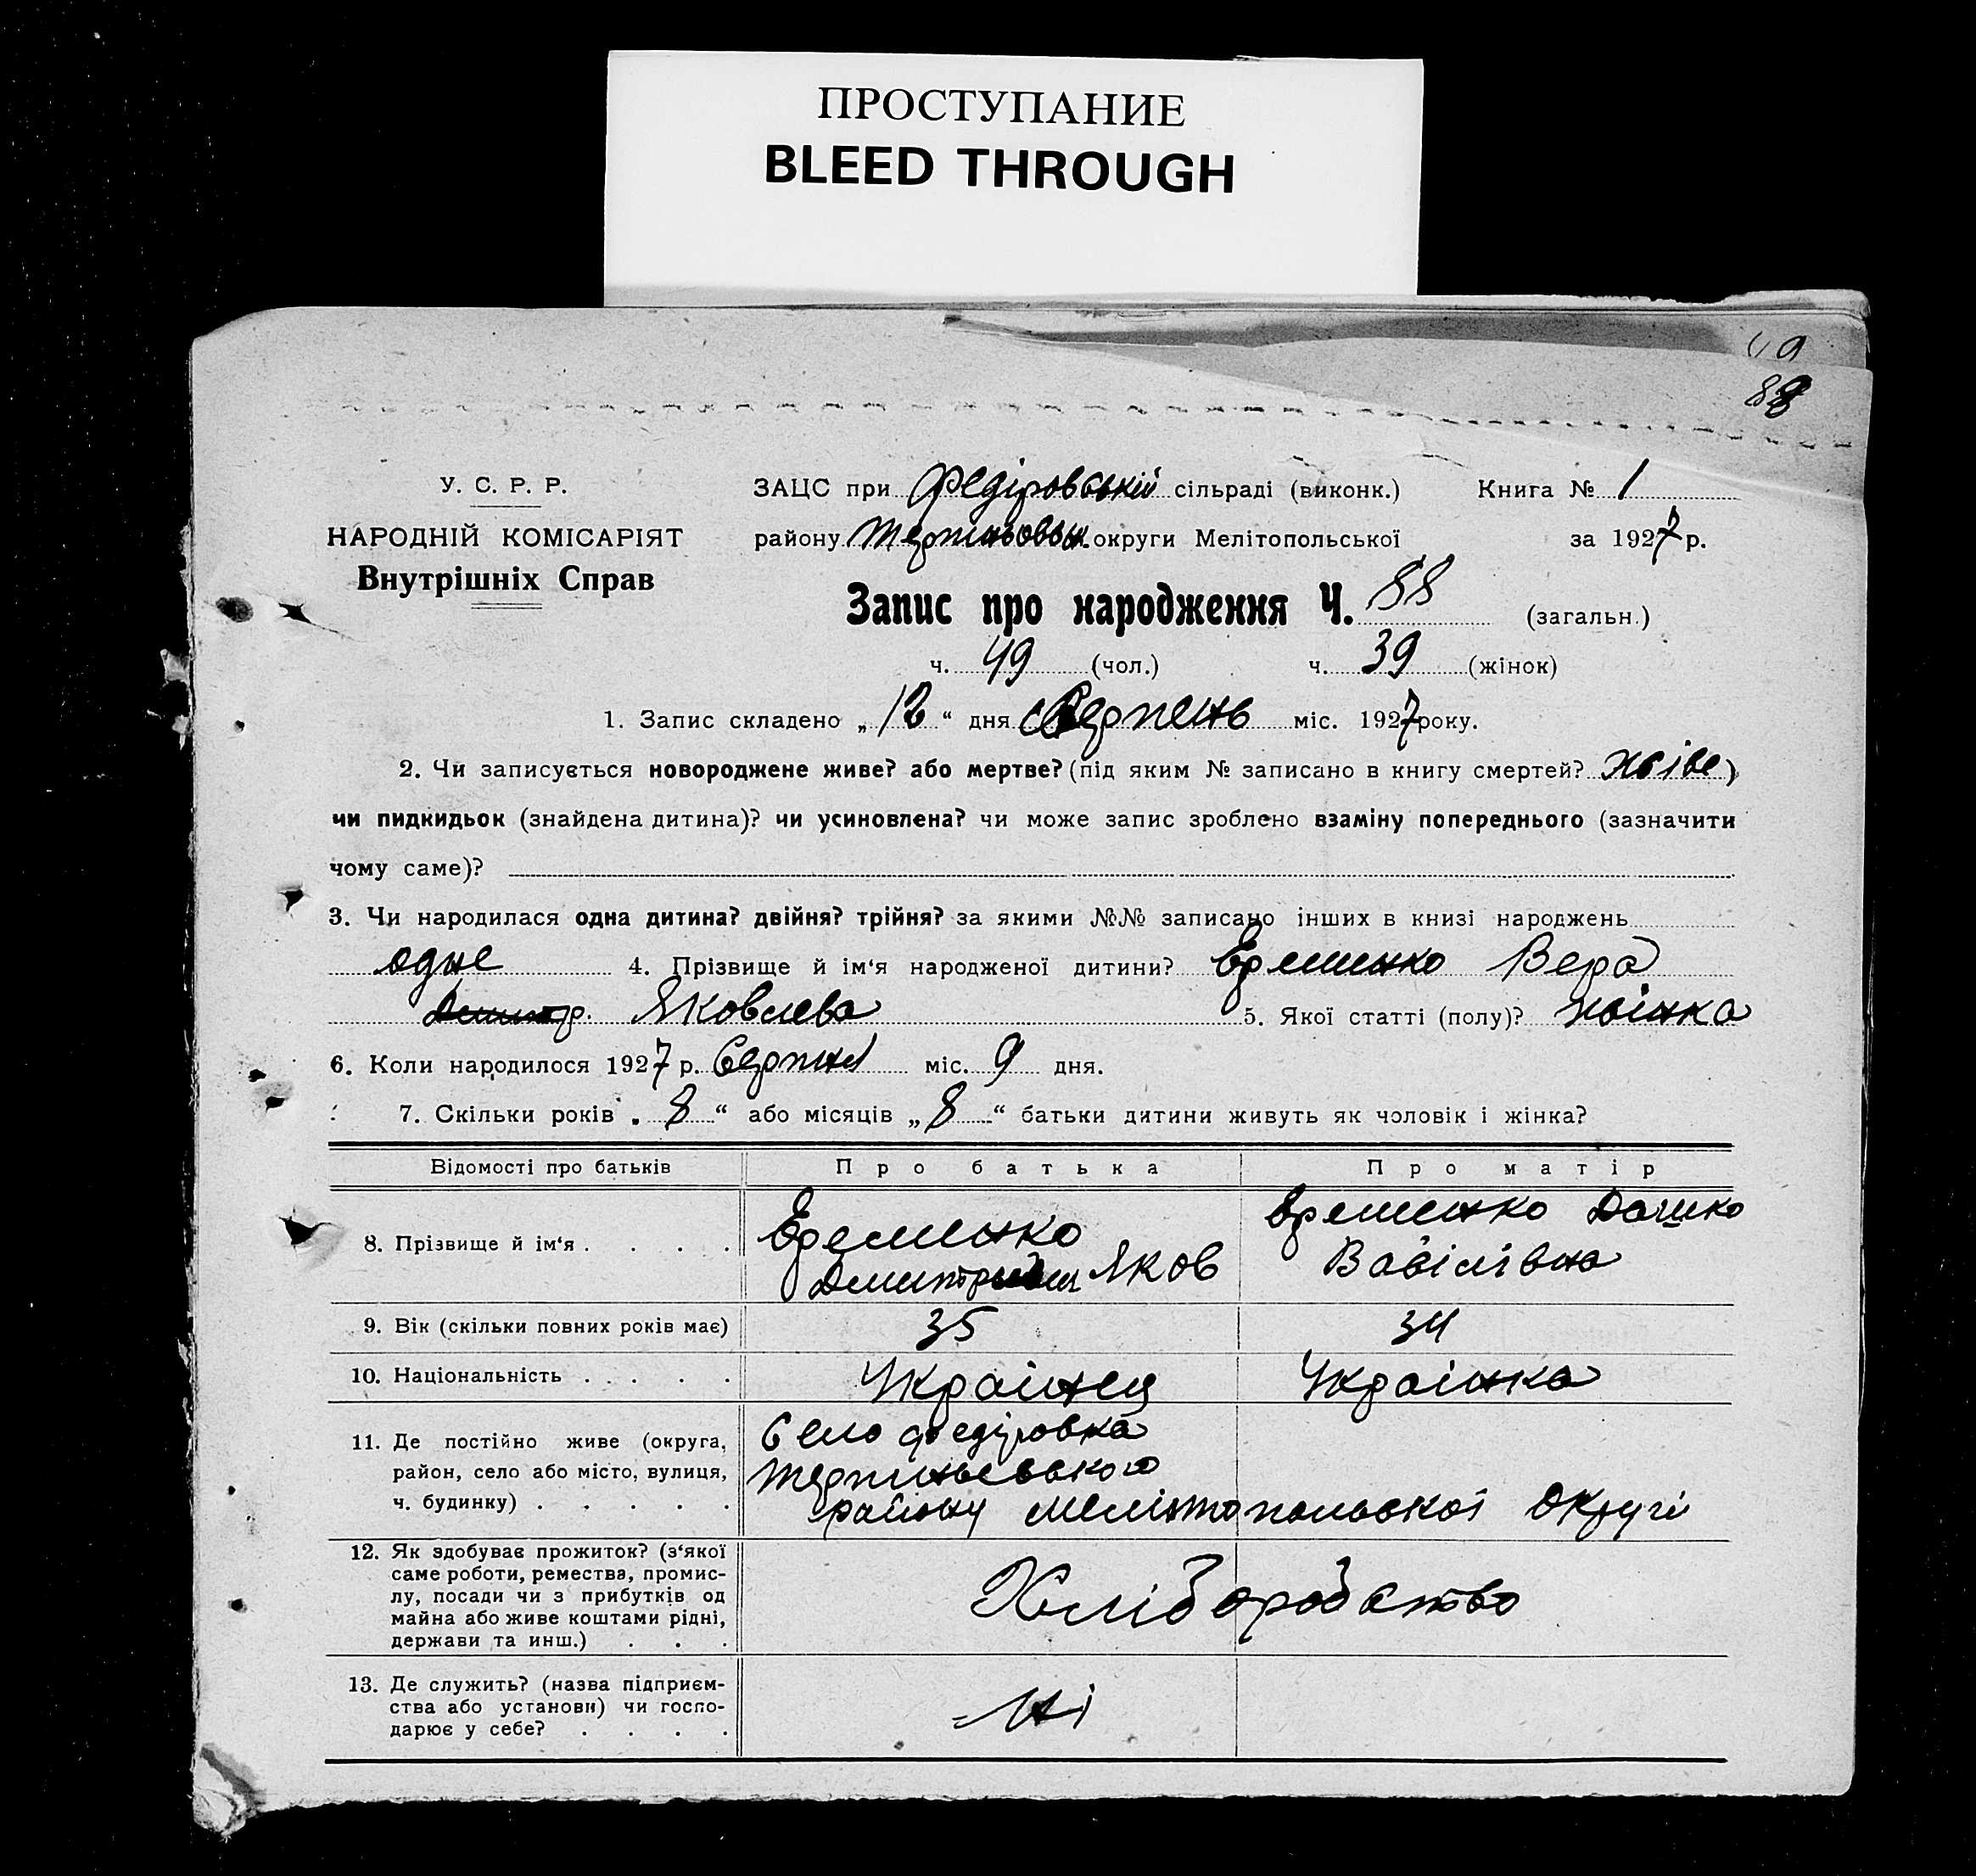 ПРОСТУПАНИЕ
BLEED THROUGH
88
У. С. Р. Р.
НАРОДНІЙ КОМІСАРІЯТ
Внутрішніх Справ
ЗАЦС при Федіровській сільраді (виконк.) Книга № 1
району округи Мелітопольської за 1927 р.
Запис про народження Ч. 88 (загальн.)
ч. 49 (чол.) ч. 39 (жінок)
1. Запис складено „12“ дня Серпень міс. 1927 року.
2. Чи записується новороджене живе? або мертве? (під яким № записано в книгу смертей? живе)
чи пидкидьок (знайдена дитина)? чи усиновлена? чи може запис зроблено взаміну попереднього (зазначити
чому саме)?
3. Чи народилася одна дитина? двійня? трійня? за якими №№ записано інших в книзі народжень
одне 4. Прізвище й ім‘я народженої дитини? Еременко Вера
Яковлева 5. Якої статті (полу)? жінка
6. Коли народилося 1927 р. Серпня міс. 9 дня.
7. Скільки років „8“ або місяців „8“ батьки дитини живуть як чоловік і жінка?
Відомості про батьків Про батька Про матір
8. Прізвище й ім‘я . . . . Еременко Яков Еременко Дашко Вавілівна
9. Вік (скільки повних років має) 35 34
10. Національність . . . . . Украінец Украінка
11. Де постійно живе (округа,
район, село або місто, вулиця,
ч. будинку) . . . . .
Село Федіровка
району Мелітопольскоі Округі
12. Як здобуває прожиток? (з‘якої
саме роботи, ремества, промис-
лу, посади чи з прибутків од
майна або живе коштами рідні,
держави та инш.) . . .
Хліборобство
13. Де служить? (назва підприєм-
ства або установи) чи госпо-
дарює у себе? . . . .
Ні